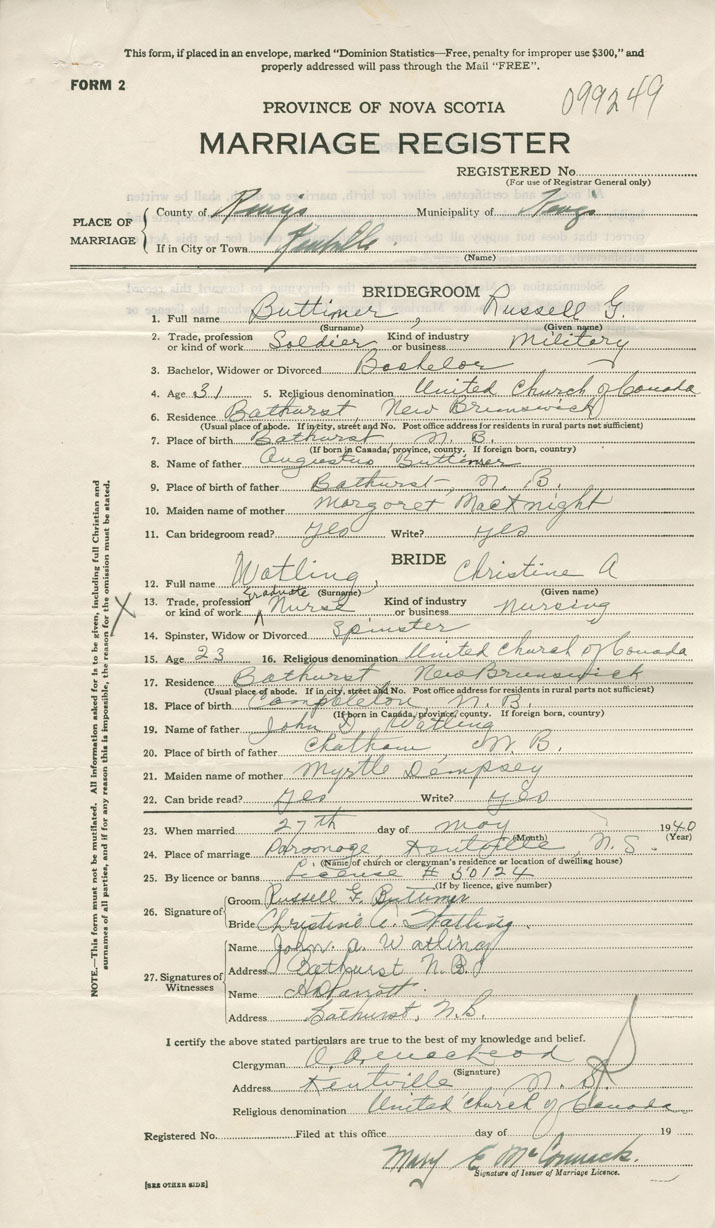 This form, if placed in an envelope, marked "Dominion Statistics—Free, penalty for improper use $300," and
properly addressed will pass through the Mail "FREE".
FORM 2
099249
PROVINCE OF NOVA SCOTIA
MARRIAGE REGISTER
REGISTERED No.
(For use of Registrar General only)
PLACE OF MARRIAGE
County of Kings Municipality of Kings
If in City or Town Kentville.
(Name)
BRIDEGROOM
1. Full name Buttimer, Russell G.
(Surname) (Given name)
2. Trade, profession or kind of work Soldier Kind of industry or business Military
3. Bachelor, Widower or Divorced Bachelor
4. Age 31 5. Religious denomination United Church of Canada
6. Residence Bathurst, New Brunswick
(Usual place of abode. If in city, street and No. Post office address for residents in rural parts not sufficient)
7. Place of birth Bathurst, N. B.
(If born in Canada, province, county. If foreign born, country)
8. Name of father Augustus Buttimer
9. Place of birth of father Bathurst, N. B.
10. Maiden name of mother Margaret MacKnight
11. Can bridegroom read? Yes Write? yes
BRIDE
12. Full name Watling, Christine A
(Surname) (Given name)
13. Trade, profession or kind of work Graduate Nurse Kind of industry or business Nursing
X
14. Spinster, Widow or Divorced Spinster
15. Age 23 16. Religious denomination United Church of Canada
17. Residence Bathurst New Brunswick
(Usual place of abode. If in city, street and No. Post office address for residents in rural parts not sufficient)
18. Place of birth Campbleton N. B.
(If born in Canada, province, county. If foreign born, country)
19. Name of father John D. Watling
20. Place of birth of father Chatham, N. B.
21. Maiden name of mother Myrtle Dempsey
22. Can bride read? Yes Write? Yes
23. When married 27th day of May 1940
(Month) (Year)
24. Place of marriage Parsonage, Kentville, N. S.
(Name of church or clergyman's residence or location of dwelling house)
25. By licence or banns License # 50124
(If by licence, give number)
26. Signature of
Groom Russell G. Buttimer
Bride Christine A. Watling.
27. Signatures of Witnesses
Name John. A. Watling
Address Bathurst N.B.
Name Parrott.
Address Bathurst, N.B.
I certify the above stated particulars are true to the best of my knowledge and belief.
Clergyman
(Signature)
Address Kentville, N. S.
Religious denomination United Church of Canada
Registered No. Filed at this office day of 19
Mary E McCormack.
Signature of Issuer of Marriage Licence.
[SEE OTHER SIDE]
NOTE.—This form must not be mutilated. All information asked for is to be given, including full Christian and
surnames of all parties, and if for any reason this is impossible, the reason for the omission must be stated.